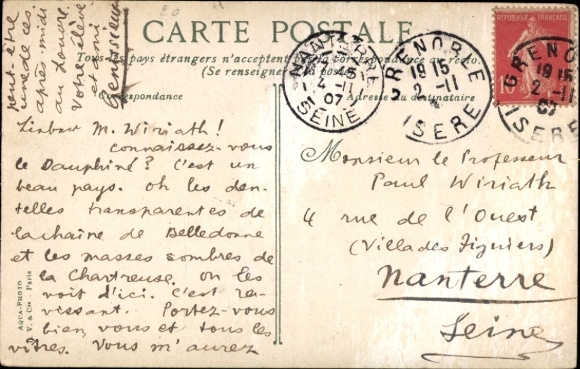 CARTE POSTALE
Tous les pays étrangers n'acceptent pas la correspondance au recto
(Se renseigner à la poste)
Correspondance
Adresse du destinataire
M. Wiriath!
connaissez-vous
le Dauphiné? C'est un
beau pays. Oh les den-
telles transparentes de
la chaîne de Belledonne
et les masses sombres de
la Chartreuse. On les
voit d'ici. C'est ra-
vissant. Portez-vous
bien, vous et tous les
vôtres. Vous m'aurez
peut-être
un de ces
après-midi
au Louvre.
Votre élève
et ami
Monsieur le Professeur
Paul Wiriath
4 rue de l'Ouest
(Villa des Figuiers)
Nanterre
Seine
REPUBLIQUE FRANÇAISE
10
NANTERRE
2-11
07
SEINE
GRENOBLE
19 15
2-11
ISERE
GRENOBLE
19 15
2-11
07
ISERE
AQUA-PHOTO
L. V. & Cie - Paris